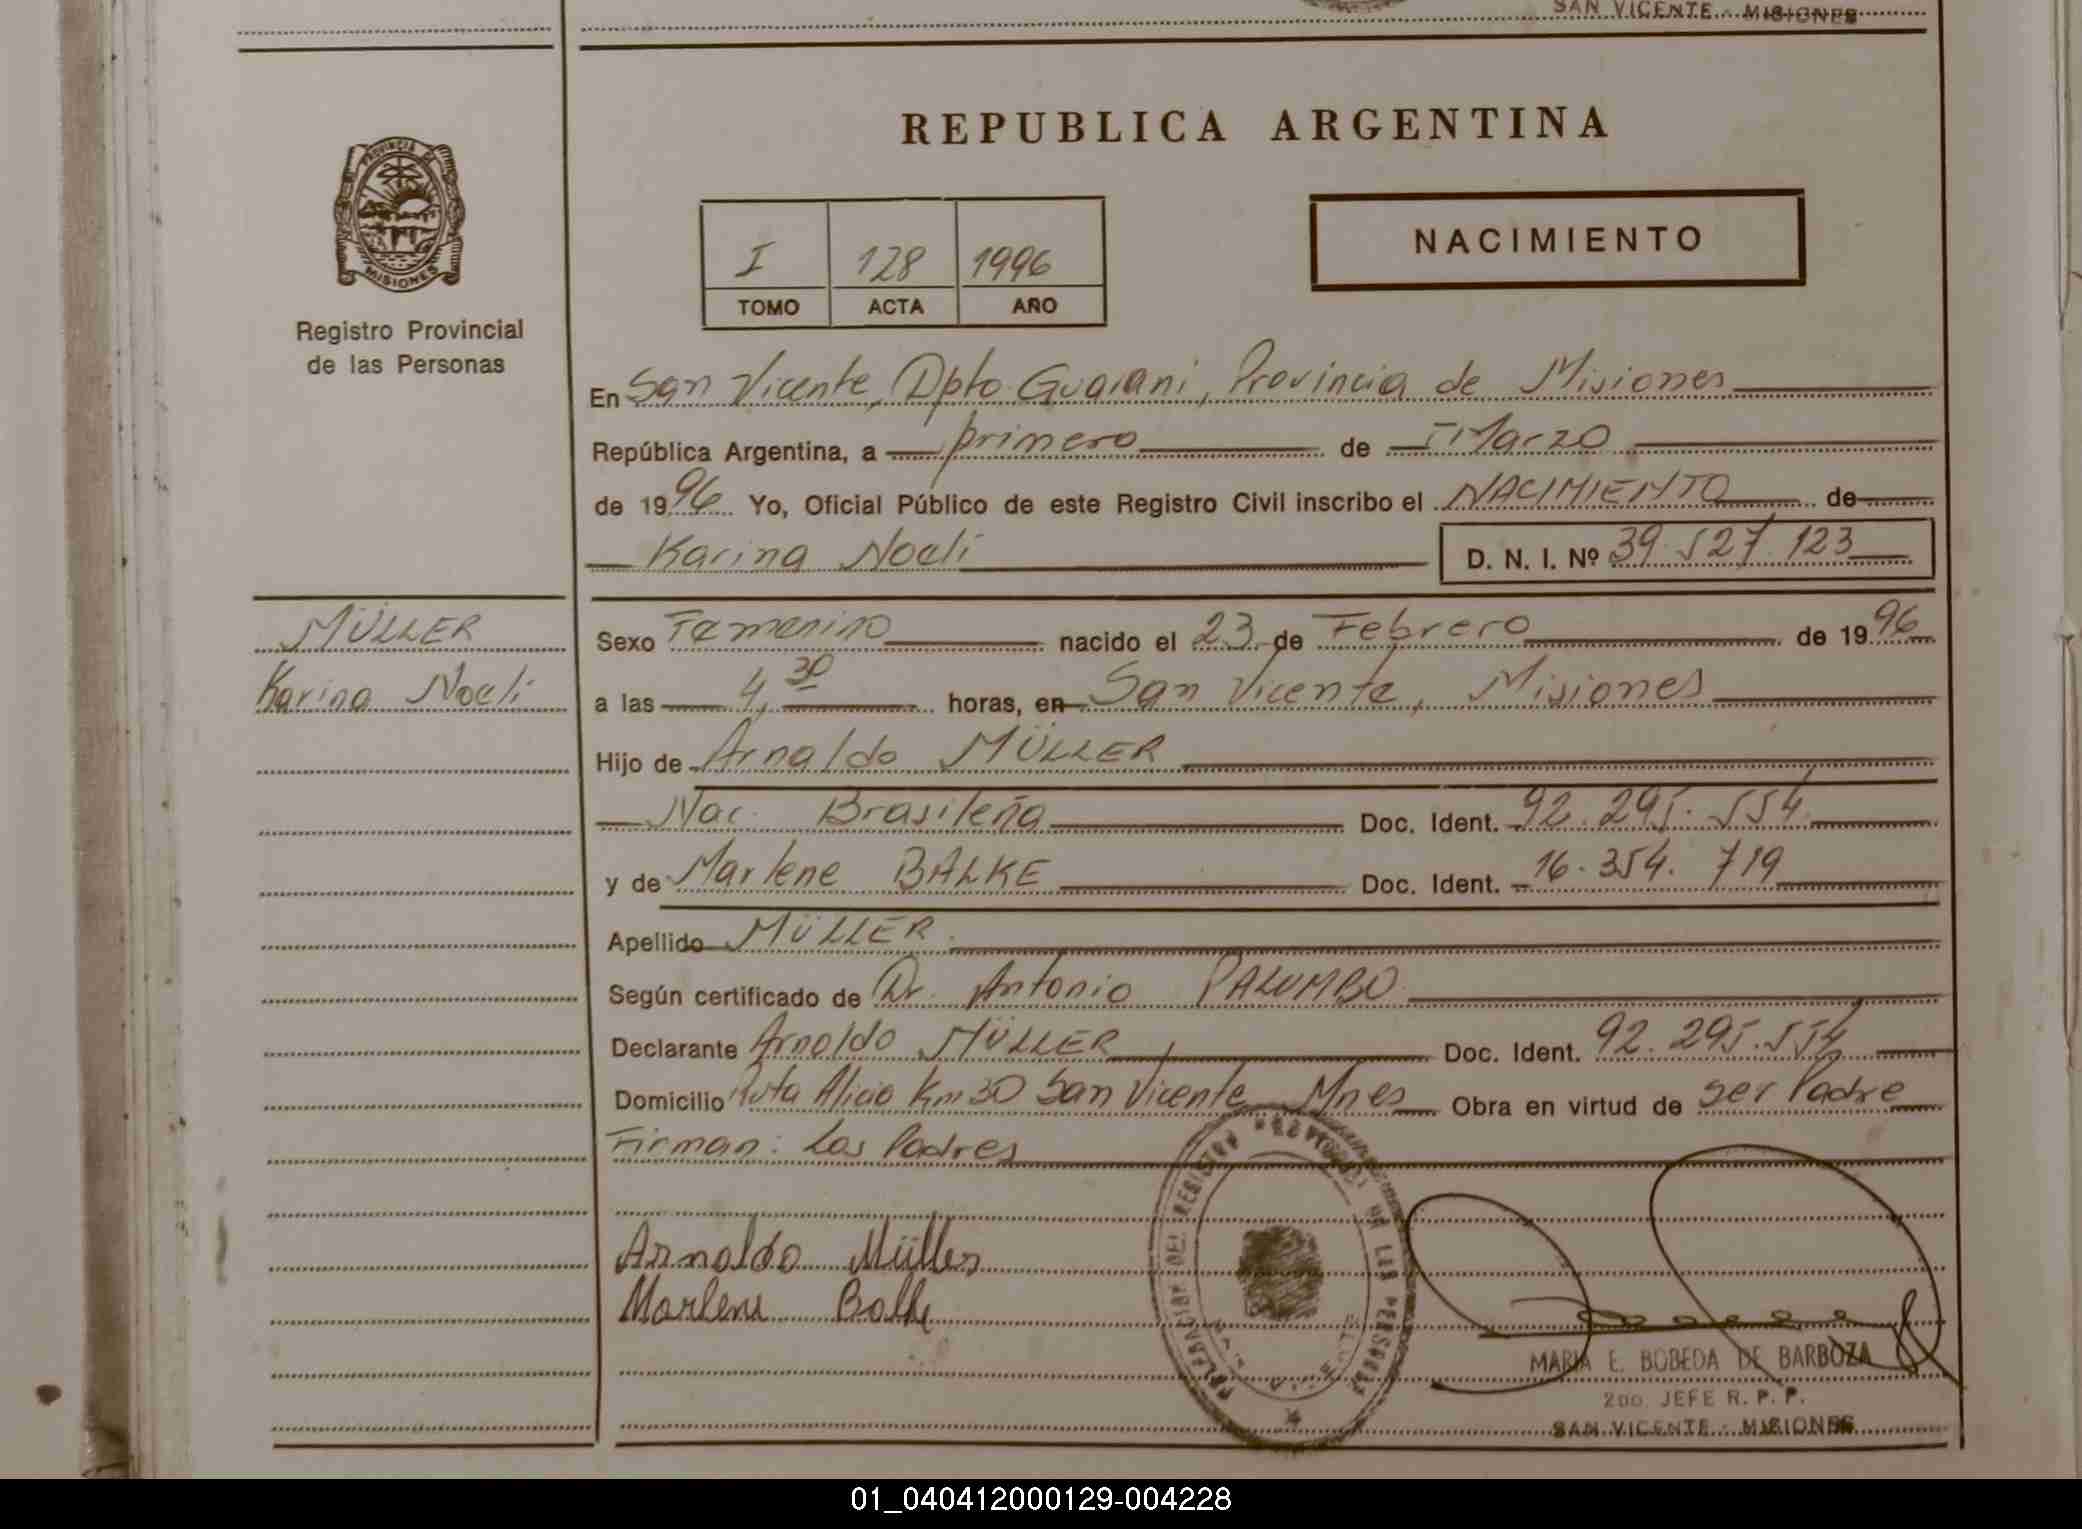 SAN VICENTE - MISIONES
REPUBLICA ARGENTINA
PROVINCIA DE
MISIONES
Registro Provincial
de las Personas
I 128 1996
TOMO ACTA AÑO
NACIMIENTO
En San Vicente, Dpto. Guaraní, Provincia de Misiones
República Argentina, a primero de Marzo
de 1996 Yo, Oficial Público de este Registro Civil inscribo el NACIMIENTO de
Karina Noeli D. N. I. Nº 39.527.123
MÜLLER
Karina Noeli
Sexo Femenino nacido el 23 de Febrero de 1996
a las 4,30 horas, en San Vicente, Misiones
Hijo de Arnaldo MÜLLER
Nac. Brasileña Doc. Ident. 92.295.554
y de Marlene BALKE Doc. Ident. 16.354.719
Apellido MÜLLER
Según certificado de Dr. Antonio PALUMBO
Declarante Arnoldo MÜLLER Doc. Ident. 92.295.554
Domicilio Ruta Alicia Km 30 San Vicente Mnes Obra en virtud de ser Padre
Firman: Los Padres
Arnoldo Müller
Marlene Balke
MARIA E. BOBEDA DE BARBOZA
2do. JEFE R. P. P.
SAN VICENTE - MISIONES
01_040412000129-004228